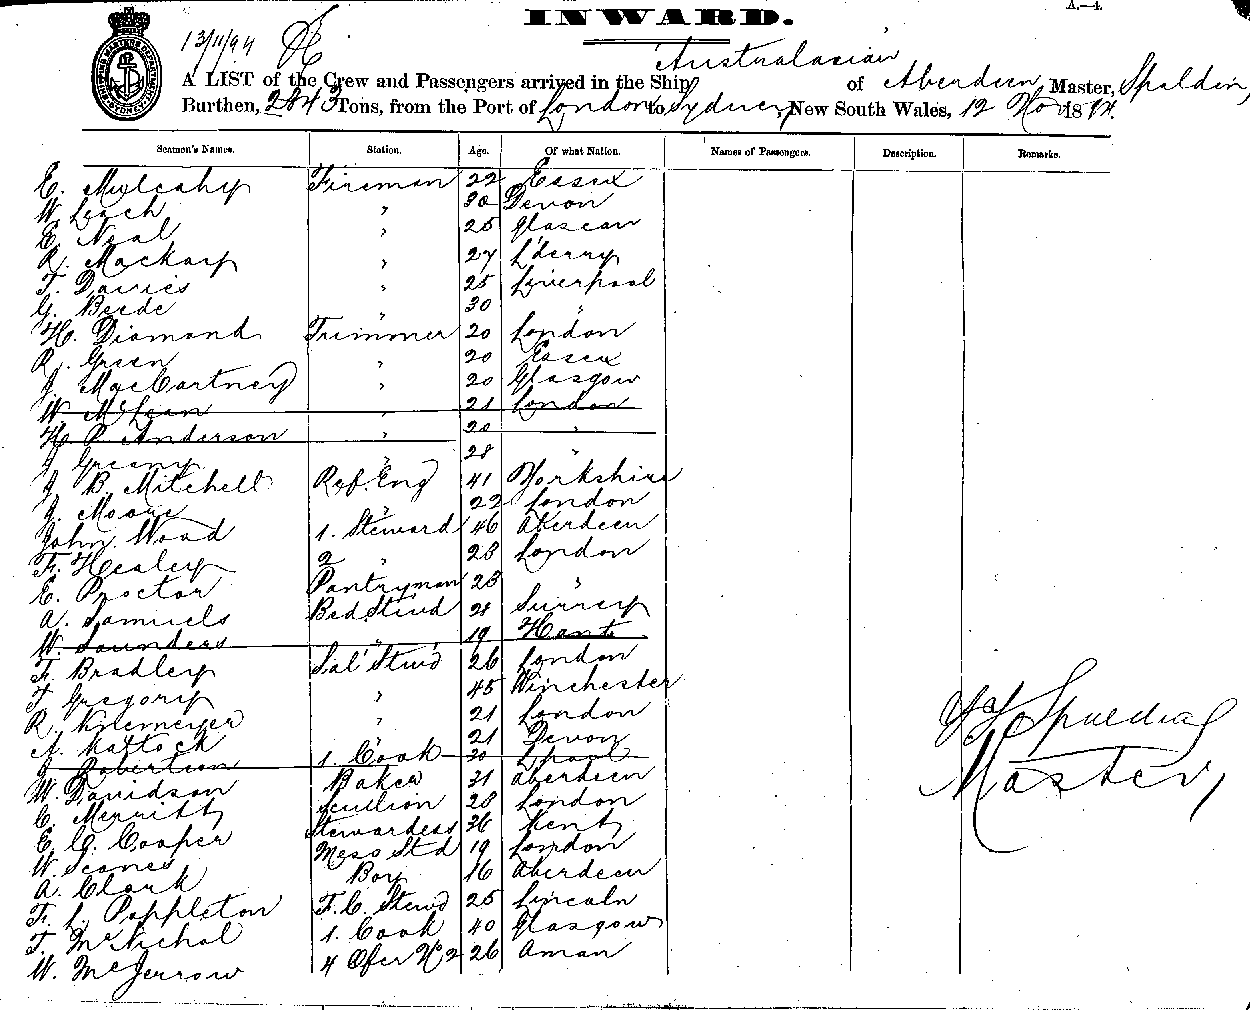 A.—4.
INWARD.
13/11/94
Australasian
A LIST of the Crew and Passengers arrived in the Ship of Aberdeen, Master, Spalding
Burthen, 2843 Tons, from the Port of London to Sydney, New South Wales, 12 Nov 1894.
Seamen's Names. Station. Age. Of what Nation. Names of Passengers. Description. Remarks.
E. Mulcahy Fireman 22 Essex
W. Leach " 30 Devon
E. Neal " 25 Glascow
R. Mackay " 27 L'derry
T. Davies " 25 Liverpool
G. Beede " 30 "
H. Diamond Trimmer 20 London
R. Green " 20 Essex
J. MacCartney " 20 Glasgow
W. McLean " 21 London
H. P. Anderson " 20 "
J. Greany " 28 "
J. B. Mitchell Ref. Eng 41 Yorkshire
J. Moore " 22 London
John Wood 1. Steward 46 Aberdeen
F. Healey 2 " 28 London
E. Proctor Pantryman 23 "
A. Samuels Bed. Stewd 21 Surrey
W. Saunders " 19 Hants
F. Bradley Sal' Stewd 26 London
T. Gregory " 45 Winchester
R. " 21 London
A. Mattock " 21 Devon
J. Robertson 1. Cook 30 L'pool
W. Davidson Baker 31 Aberdeen
C. Merritt Scullion 28 London
E. G. Cooper Stewardess 36 Kent
W. Scones Mess Std 19 London
A. Clark Boy 16 Aberdeen
F. L. Poppleton F. C. Stewd 25 Lincoln
T. McNichol 1. Cook 40 Glasgow
W. McJerrow 4 Ofcer 26
Spalding
Master